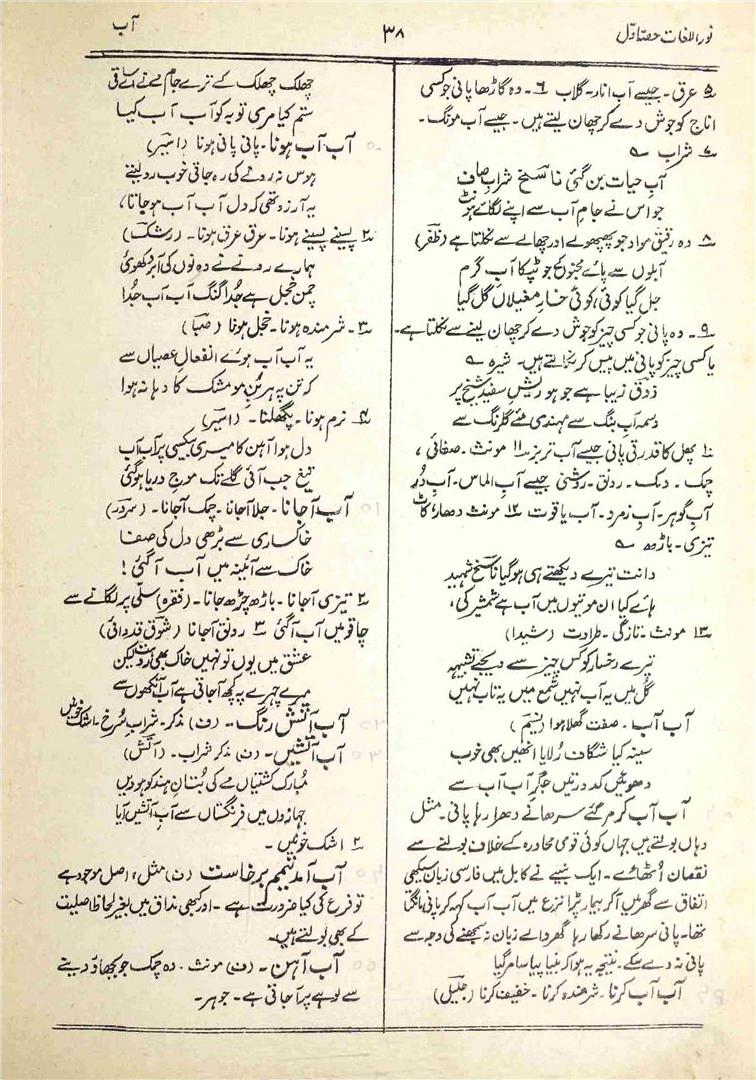 نوراللغات حصہ اوّل
۳۸
آب
۵ عرق۔ جیسے آب انار۔ گلاب ۶۔ وہ گاڑھا پانی جو کسی
اناج کو جوش دے کر چھان لیتے ہیں۔ جیسے آب مونگ۔
۷ شراب ؎
آبِ حیات بن گئی ناسخ شرابِ صاف
جو اس نے جامِ آب سے اپنے لگائے ہونٹ
۸ وہ رقیق مواد جو پھپھولے اور چھالے سے نکلتا ہے (ظفر)
آبلوں سے پائے مجنوں کے جو ٹپکا آبِ گرم
جل گیا کوئی، کوئی خارِ مغیلاں گل گیا
۹۔ وہ پانی جو کسی چیز کو جوش دے کر چھان لینے سے نکلتا ہے۔
یا کسی چیز کو پانی میں پیس کر نکالتے ہیں۔ شیرہ ؎
ذوق زیبا ہے جو ہو ریشِ سفیدِ شیخ پر
وسمہ آبِ بنگ سے مہندی مئے گلرنگ سے
۱۰ پھل کا قدرتی پانی جیسے آب تربز ۱۱ مونث۔ صفائی،
چمک۔ دمک۔ رونق۔ روشنی جیسے آبِ الماس۔ آبِ دُر
آبِ گوہر۔ آبِ زمرد۔ آب یاقوت ۱۲ مونث دھار، کاٹ
تیزی۔ باڑھ ؎
دانت تیرے دیکھتے ہی ہوگیا ناسخ شہید
ہائے کیا ان موتیوں میں آب ہے شمشیر کی،
۱۳ مونث۔ تازگی۔ طراوت (شیدا)
تیرے رخسار کو کس چیز سے دیجے تشبیہہ
گل میں یہ آب نہیں شمع میں یہ تاب نہیں
آب آب۔ صفت گھلا ہوا (نسیم)
سینہ کیا شگاف رُلایا انھیں بھی خوب
دھوئیں کدورتیں جگرِ آب آب سے
آب آب کر مر گئے سرھانے دھرا رہا پانی۔ مثل
وہاں بولتے ہیں جہاں کوئی قومی محاورہ کے خلاف بولنے سے
نقصان اُٹھائے۔ ایک بنیے نے کابل میں فارسی زبان سیکھی
اتفاق سے گھر میں آکر بیمار پڑا نزع میں آب آب کہہ کر پانی مانگتا
تھا۔ پانی سرھانے رکھا رہا گھر والے زبان نہ سمجھنے کی وجہ سے
پانی نہ دے سکے۔ نتیجہ یہ ہوا کہ بنیا پیاسا مر گیا
آب آب کرنا۔ شرمندہ کرنا۔ خفیف کرنا (جلیل)
چھلک چھلک کے ترے جامِ مے نے اے ساقی
ستم کیا مری توبہ کو آب آب کیا
آب آب ہونا۔ پانی پانی ہونا (امیر)
ہوس نہ رونے کی رہ جاتی خوب رو لیتے
یہ آرزو تھی کہ دل آب آب ہو جاتا،
۲ پسینے پسینے ہونا۔ عرق عرق ہونا۔ (رشک)
ہمارے رونے نے دونوں کی آبرو کھوئی
چمن خجل ہے جُدا گنگ آب آب جُدا
۳۔ شرمندہ ہونا۔ خجل ہونا (صبا)
یہ آب آب ہوئے انفعالِ عصیاں سے
کہ تن پہ ہر بُنِ مو مشک کا دہانہ ہوا
۴ نرم ہونا۔ پگھلنا۔ (اسیر)
دل ہوا آہن کا میری بیکسی پر آب آب
تیغ جب آئی گلے تک موجِ دریا ہوگئی
آب آجانا۔ جلا آجانا۔ چمک آجانا۔ (سرور)
خاکساری سے بڑھی دل کی صفا
خاک سے آئینہ میں آب آگئی!
۲ تیزی آجانا۔ باڑھ چڑھ جانا۔ (فقرہ) سلّی پر لگانے سے
چاقو میں آب آگئی ۳ رونق آجانا (شوق قدوائی)
عشق میں یوں تو نہیں خاک بھی رونق لیکن
میرے چہرے پہ کچھ آجاتی ہے آب آنکھوں سے
آب آتش رنگ۔ (ف) مذکر۔ شراب سُرخ۔ اشک خونیں
آب آتشیں۔ (ف) مذکر شراب۔ (آتش)
مُبارک کشتیاں مے کی بُتانِ ہند کو ہوویں
جہازوں میں فرنگستاں سے آبِ آتشیں آیا
۲ اشک خونیں۔
آب آمد تیمم برخاست (ف) مثل، اصل موجود ہے
تو فرع کی کیا ضرورت ہے۔ اور کبھی مذاق میں بغیر لحاظ اصلیت
کے بھی بولتے ہیں۔
آب آہن۔ (ف) مونث۔ وہ چمک جو بجھاؤ دینے
سے لوہے پر آجاتی ہے۔ جوہر۔